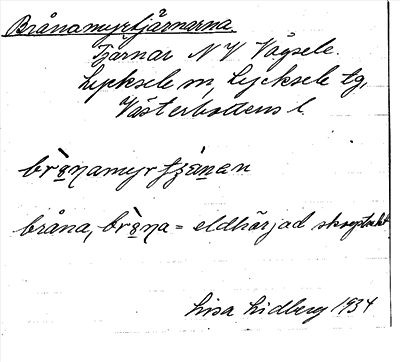 Brånamyrtjärnarna.
Tjärnar N V Vägsele.
Lycksele sn, Lycksele tg,
Västerbottens l.
brånamyrtjänan
bråna, bråna = eldhärjad skogstrakt
Lisa Lidberg 1934